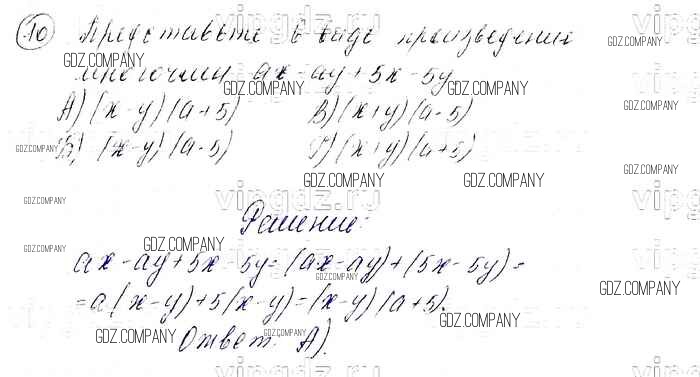 10 Представьте в виде произведения
многочлен ax - ay + 5x - 5y
А) (x - y) (a + 5) В) (x + y) (a - 5)
Б) (x - y) (a - 5) Г) (x + y) (a + 5)
Решение:
ax - ay + 5x - 5y = (ax - ay) + (5x - 5y) =
= a (x - y) + 5 (x - y) = (x - y) (a + 5).
Ответ: А).